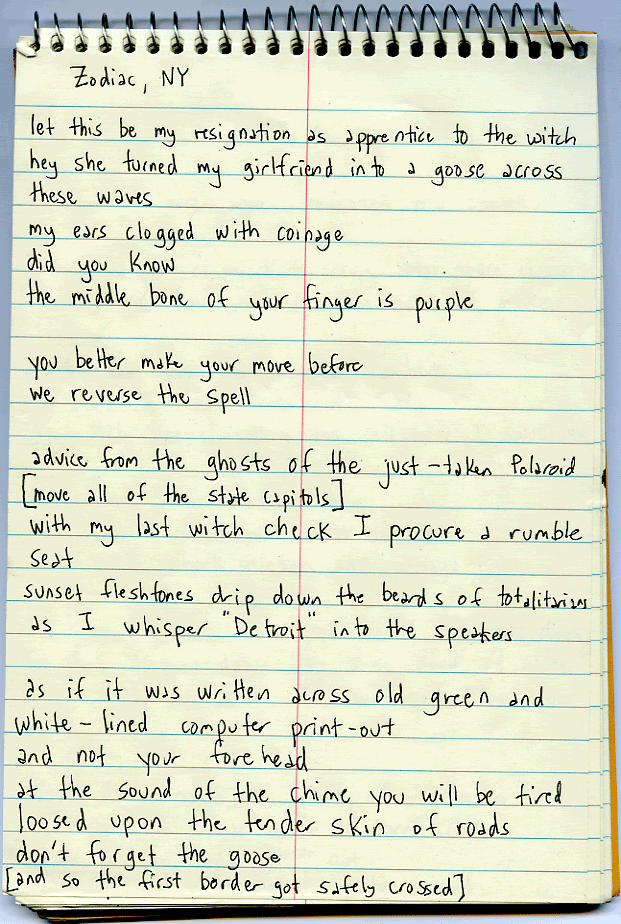 Zodiac, NY
let this be my resignation as apprentice to the witch
hey she turned my girlfriend into a goose across
these waves
my ears clogged with coinage
did you know
the middle bone of your finger is purple
you better make your move before
we reverse the spell
advice from the ghosts of the just-taken Polaroid
[move all of the state capitols]
with my last witch check I procure a rumble
seat
sunset fleshtones drip down the beards of totalitarians
as I whisper "Detroit" into the speakers
as if it was written across old green and
white-lined computer print-out
and not your forehead
at the sound of the chime you will be tired
loosed upon the tender skin of roads
don't forget the goose
[and so the first border got safely crossed]